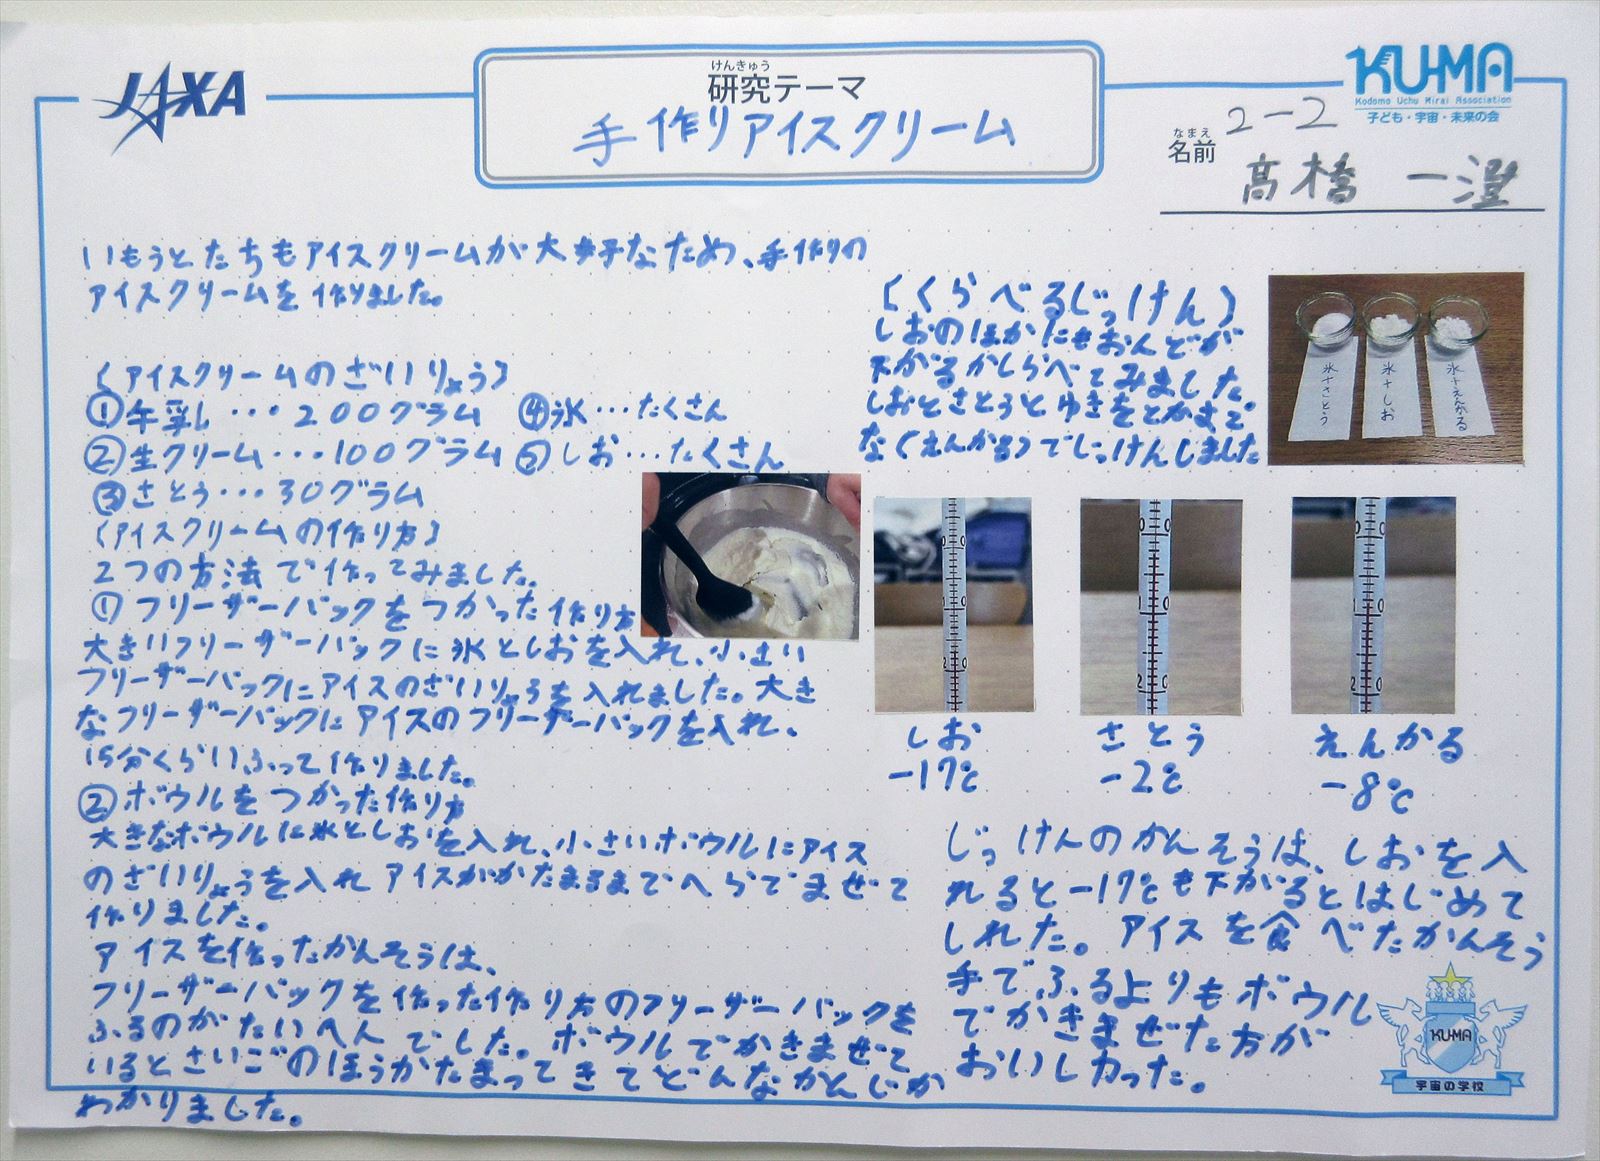 JAXA
けんきゅう
研究テーマ
手作りアイスクリーム
KU-MA
Kodomo Uchu Mirai Association
子ども・宇宙・未来の会
なまえ
名前
2-2
髙橋 一澄
いもうとたちもアイスクリームが大好なため、手作りの
アイスクリームを作りました。
〔アイスクリームのざいりょう〕
①牛乳し…200グラム ④氷…たくさん
②生クリーム…100グラム ⑤しお…たくさん
③さとう…30グラム
〔アイスクリームの作り方〕
2つの方法で作ってみました。
①フリーザーバックをつかった作り方
大きいフリーザーバックに氷としおを入れ、小さい
フリーザーバックにアイスのざいりょうを入れました。大き
なフリーザーバックにアイスのフリーザーバックを入れ、
15分くらいふって作りました。
②ボウルをつかった作り方
大きなボウルに氷としおを入れ、小さいボウルにアイス
のざいりょうを入れアイスがかたまるまでへらでまぜて
作りました。
アイスを作ったかんそうは、
フリーザーバックを作った作り方のフリーザーバックを
ふるのがたいへんでした。ボウルでかきまぜて
いるとさいごのほうかたまってきてどんなかんじか
わかりました。
〔くらべるじっけん〕
しおのほかにもおんどが
下がるかしらべてみました。
しおとさとうとゆきをとかすで
な(えんかる)でじっけんしました
氷+さとう
氷+しお
氷+えんかる
0 0
1 0
2 0
0 0
1 0
2 0
0 0
1 0
2 0
しお
-17℃
さとう
-2℃
えんかる
-8℃
じっけんのかんそうは、しおを入
れると-17℃も下がるとはじめて
しれた。アイスを食べたかんそう
手でふるよりもボウル
でかきまぜた方が
おいしかった。
KU-MA
宇宙の学校